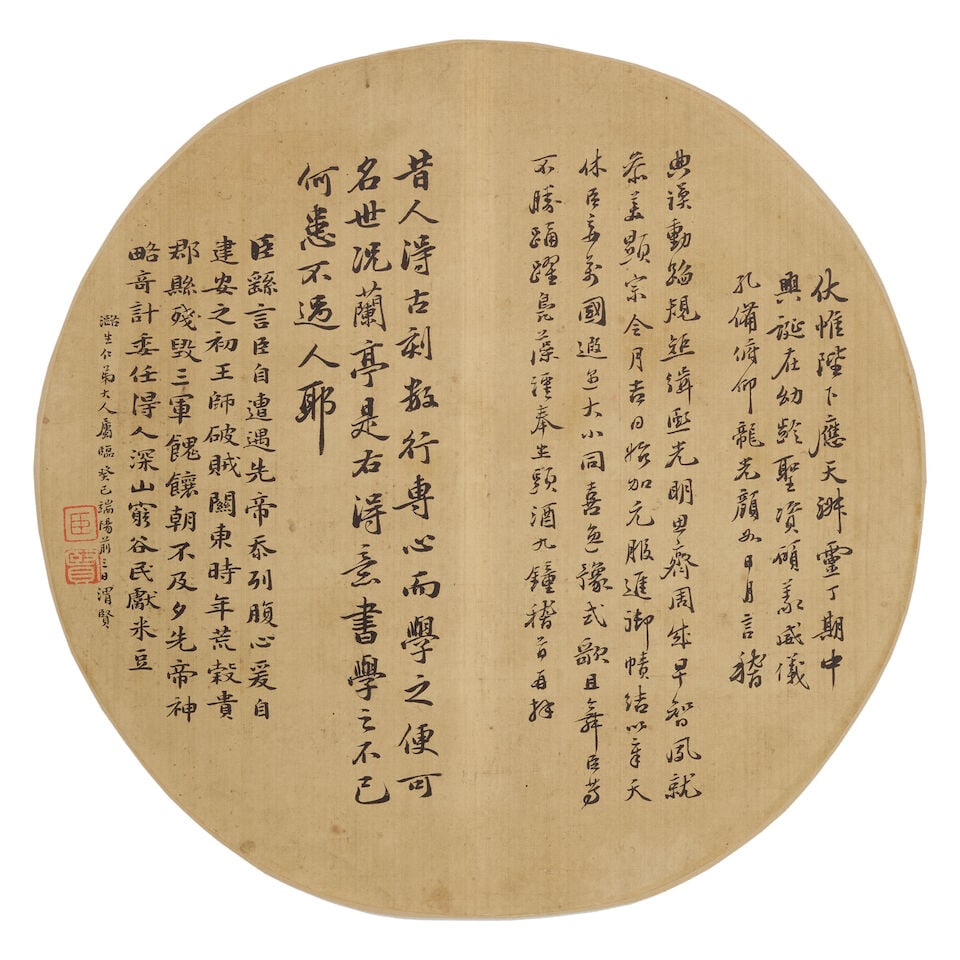 伏惟陛下應天挺靈丁期中
興誕在幼齡聖資碩義威儀
孔備俯仰龍光顏如日月言稽
典謨動蹈規矩緝熙光明思齊周成早智夙就
恭美顯宗令月吉日始加元服進御幘結以章天
休臣妾萬國遐邇大小同喜兼豫式歌且舞臣等
不勝踊躍鳧藻謹奉生頭酒九鐘稽首再拜
昔人得古刻數行專心而學之便可
名世況蘭亭是右得意書學之不已
何患不過人耶
臣繇言臣自遭遇先帝忝列腹心爰自
建安之初王師破賊關東時年荒穀貴
郡縣殘毀三軍餽饟朝不及夕先帝神
略奇計委任得人深山窮谷民獻米豆
潞生仁弟大人屬臨癸巳端陽前三日渭賢